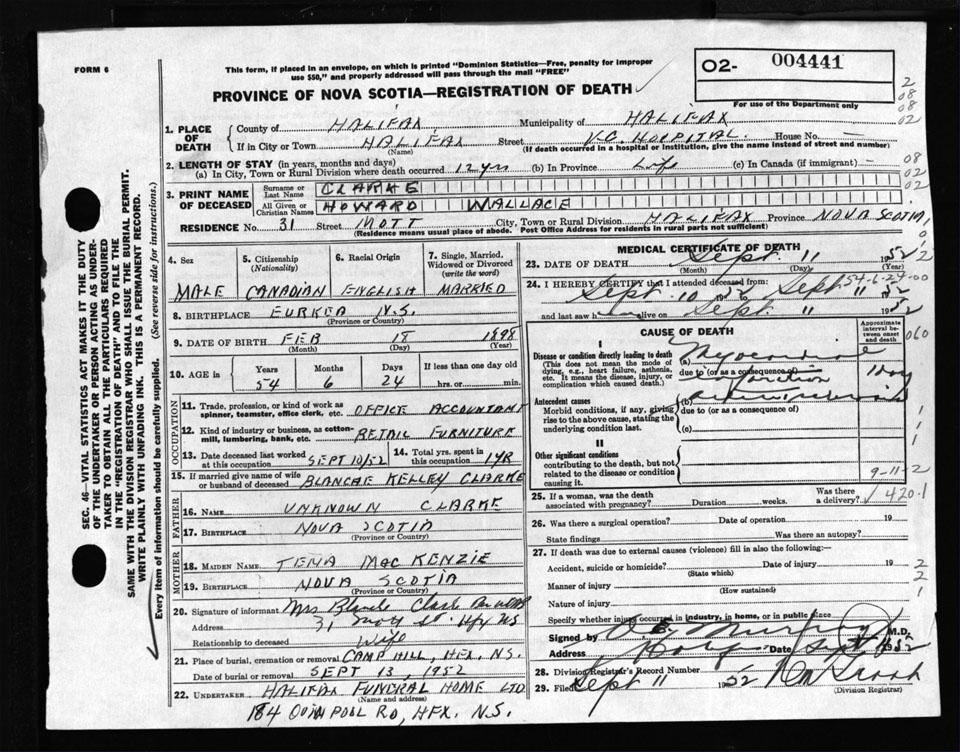 FORM 6
This form, if placed in an envelope, on which is printed "Dominion Statistics—Free, penalty for improper
use $50," and properly addressed will pass through the mail "FREE"
O2- 004441
For use of the Department only
PROVINCE OF NOVA SCOTIA—REGISTRATION OF DEATH
2
08
08
02
1. PLACE OF DEATH
County of HALIFAX Municipality of HALIFAX
If in City or Town HALIFAX Street V.G. HOSPITAL. House No. —
(Name) (If death occurred in a hospital or institution, give the name instead of street and number)
2. LENGTH OF STAY (in years, months and days)
(a) In City, Town or Rural Division where death occurred 12 yrs (b) In Province Life (c) In Canada (if immigrant) —
08
02
02
3. PRINT NAME OF DECEASED
Surname or Last Name CLARKE
All Given or Christian Names HOWARD WALLACE
RESIDENCE No. 31 Street MOTT City, Town or Rural Division HALIFAX Province NOVA SCOTIA
(Residence means usual place of abode. Post Office Address for residents in rural parts not sufficient)
4. Sex
MALE
5. Citizenship
(Nationality)
CANADIAN
6. Racial Origin
ENGLISH
7. Single, Married,
Widowed or Divorced
(write the word)
MARRIED
8. BIRTHPLACE EUREKA N.S.
(Province or Country)
9. DATE OF BIRTH FEB 18 1898
(Month) (Day) (Year)
10. AGE in
Years Months Days If less than one day old
54 6 24 hrs. or min.
OCCUPATION
11. Trade, profession, or kind of work as
spinner, teamster, office clerk, etc. OFFICE ACCOUNTANT
12. Kind of industry or business, as cotton-
mill, lumbering, bank, etc. RETAIL FURNITURE
13. Date deceased last worked
at this occupation SEPT 10/52
14. Total yrs. spent in
this occupation 1 YR
15. If married give name of wife
or husband of deceased BLANCHE KELLEY CLARKE
FATHER
16. NAME UNKNOWN CLARKE
17. BIRTHPLACE NOVA SCOTIA
(Province or Country)
MOTHER
18. MAIDEN NAME TENA MacKENZIE
19. BIRTHPLACE NOVA SCOTIA
(Province or Country)
20. Signature of informant Mrs Blanche Clarke
Address 31 Mott St. Hfx NS
Relationship to deceased Wife
21. Place of burial, cremation or removal CAMP HILL, HFX. N.S.
Date of burial or removal SEPT 13, 1952
22. UNDERTAKER HALIFAX FUNERAL HOME LTD
(Name and address)
184 QUINPOOL RD, HFX. N.S.
MEDICAL CERTIFICATE OF DEATH
23. DATE OF DEATH Sept. 11 1952
(Month) (Day) (Year)
54-6-24-00
24. I HEREBY CERTIFY that I attended deceased from:
Sept. 10 1952 to Sept. 11 1952
and last saw h alive on Sept. 11 1952
CAUSE OF DEATH
Approximate
interval be-
tween onset
and death
060
I
Disease or condition directly leading to death
(This does not mean the mode of
dying, e.g., heart failure, asthenia,
etc. It means the disease, injury, or
complication which caused death.)
(a) Myocardial
due to (or as a consequence of)
infarction
1 day
Antecedent causes
Morbid conditions, if any, giving
rise to the above cause, stating the
underlying condition last.
(b)
due to (or as a consequence of)
(c)
II
Other significant conditions
contributing to the death, but not
related to the disease or condition
causing it.
9-11-2
25. If a woman, was the death
associated with pregnancy? Duration weeks. Was there
a delivery?
420.1
26. Was there a surgical operation? Date of operation 19
State findings Was there an autopsy?
27. If death was due to external causes (violence) fill in also the following:—
Accident, suicide or homicide? Date of injury 19
(State which)
Manner of injury
(How sustained)
Nature of injury
Specify whether injury occurred in industry, in home, or in public place
Signed by Murphy M.D.
Address Date Sept 11 1952
28. Division Registrar's Record Number
29. Filed Sept 11 1952
(Division Registrar)
SEC. 46—VITAL STATISTICS ACT MAKES IT THE DUTY
OF THE UNDERTAKER OR PERSON ACTING AS UNDER-
TAKER TO OBTAIN ALL THE PARTICULARS REQUIRED
IN THE "REGISTRATION OF DEATH" AND TO FILE THE
SAME WITH THE DIVISION REGISTRAR WHO SHALL ISSUE THE BURIAL PERMIT.
WRITE PLAINLY WITH UNFADING INK. THIS IS A PERMANENT RECORD.
Every item of information should be carefully supplied. (See reverse side for instructions.)